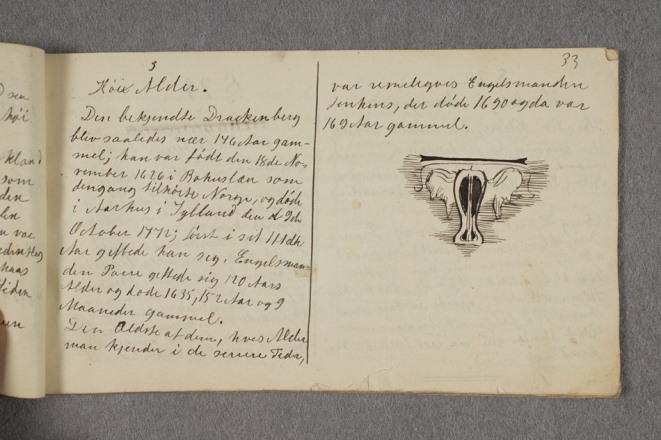 33
3
Høie Alder.
Den bekjendte Drackenberg
blev saaledes nær 146 Aar gam-
mel; han var født den 18de No-
vember 1626 i Bohuslæn som
dengang tilhørte Norge, og døde
i Aarhus i Jylland den 9de
October 1772; først i sit 111de
Aar giftede han sig. Engelsman-
den Parre giftede sig 120 Aars
Alder og døde 1635, 152 Aar og 9
Maaneder gammel.
Den Ældste af dem, hves Alder
man kjender i de senere Tider,
var Engelsmanden
Jenkins, der døde 1690 og da var
169 Aar gammel.